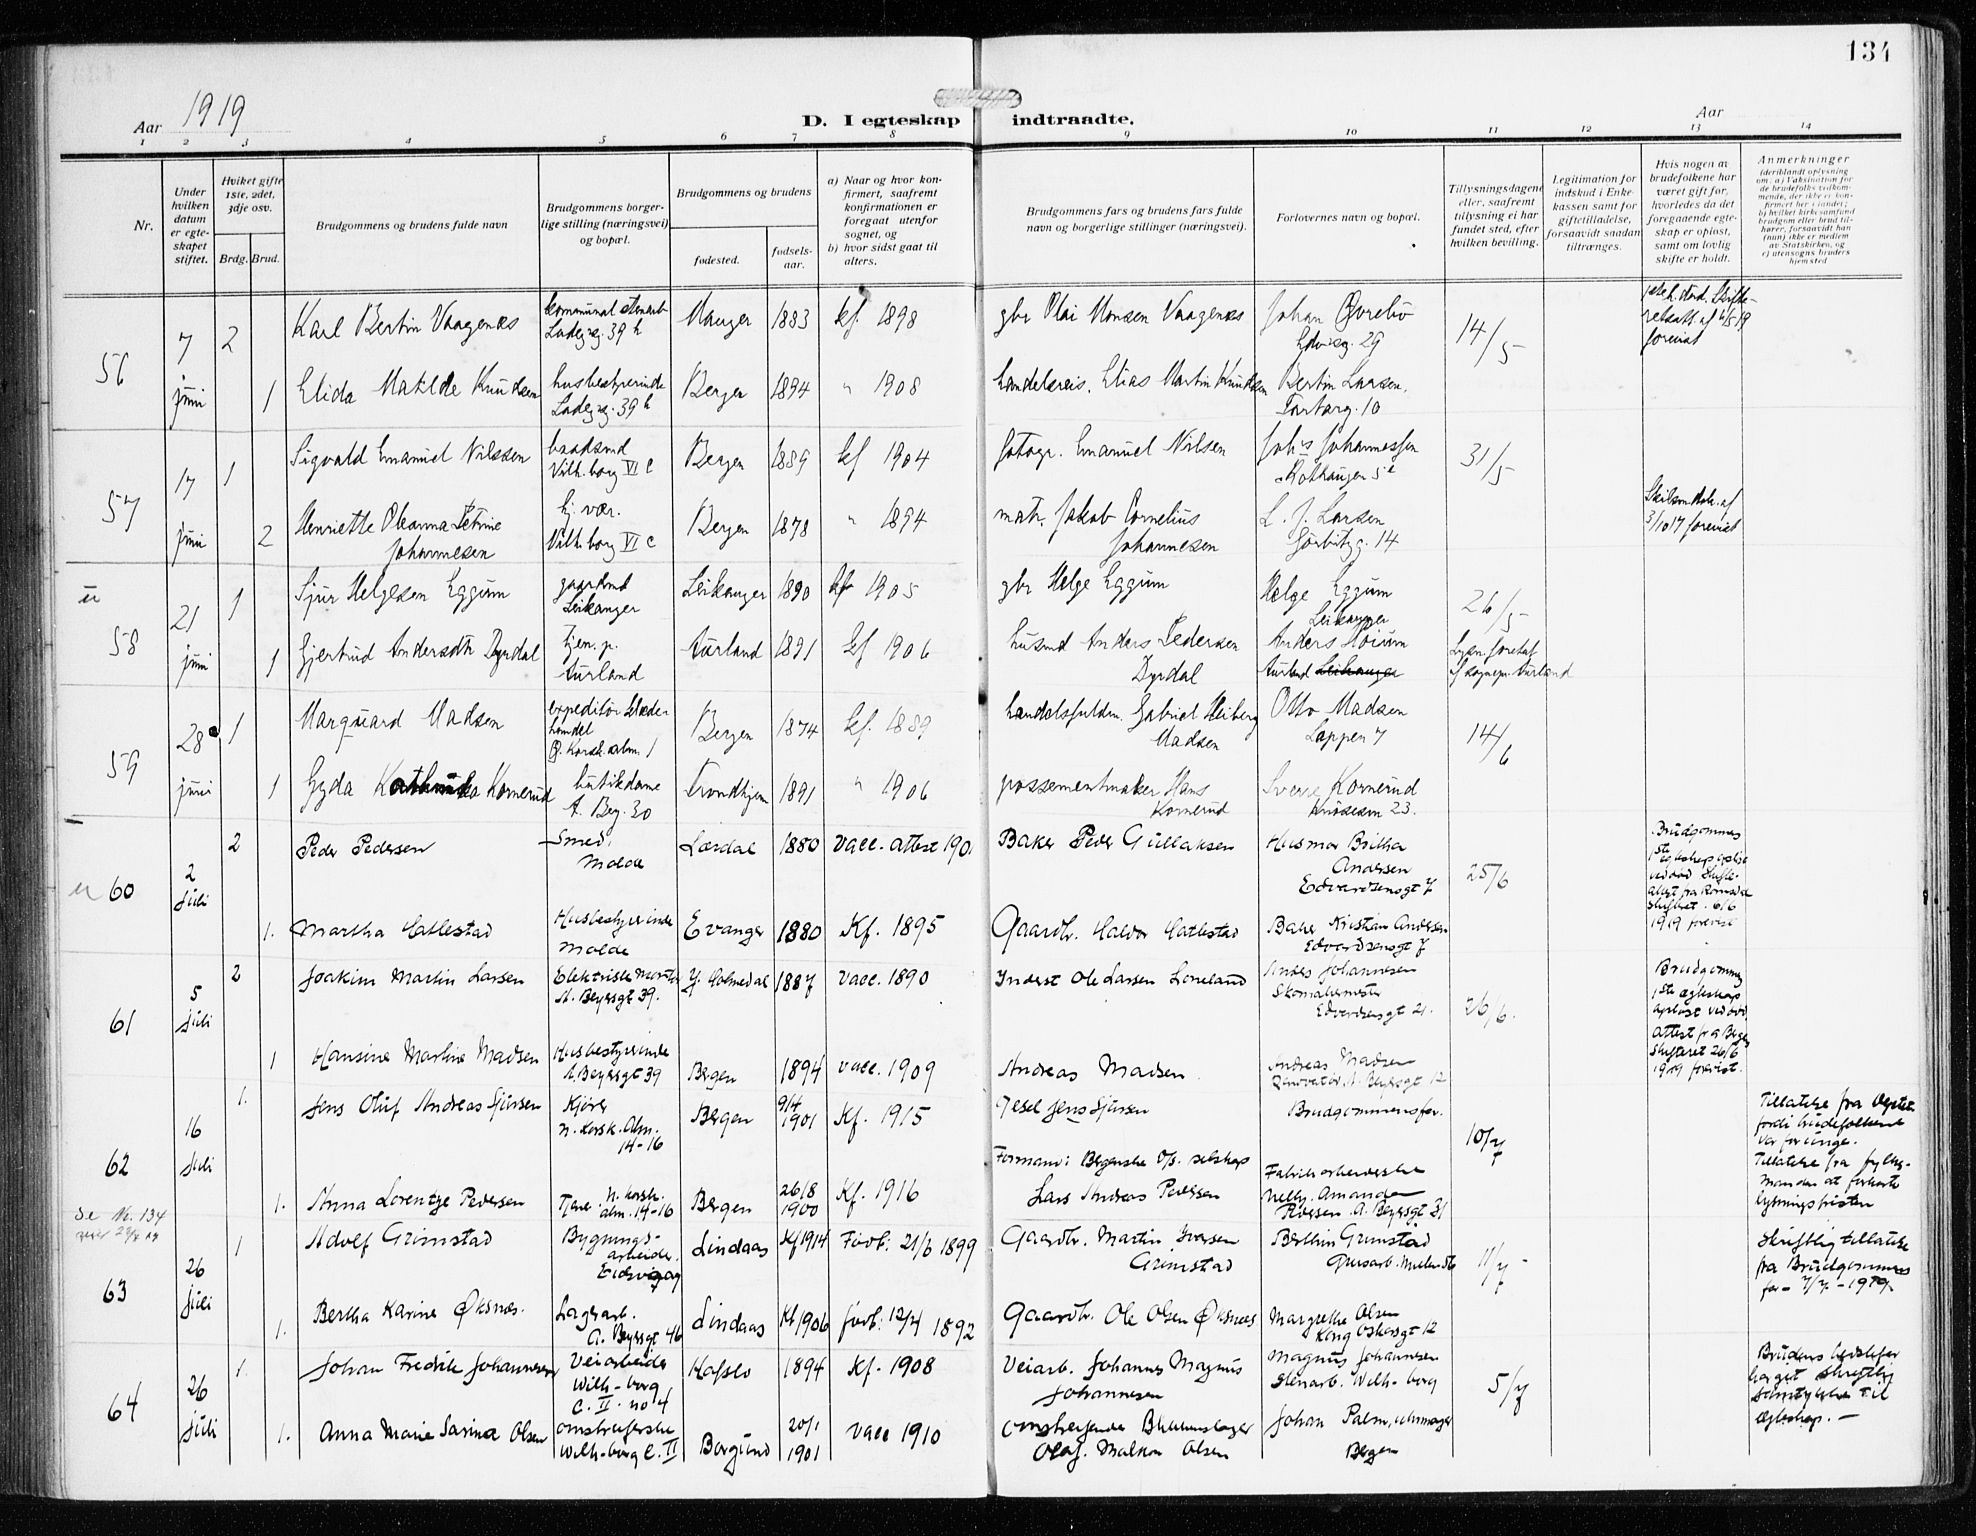 134
Aar 1919
D. I egteskap indtraadte.
Aar
1 2 3 4 5 6 7 8 9 10 11 12 13 14
Nr.
Under hvilken datum er egteskapet stiftet.
Hviket gifte 1ste, 2det, 3dje osv.
Brdg. Brud.
Brudgommens og brudens fulde navn
Brudgommens borgerlige stilling (næringsvei) og bopæl.
Brudgommens og brudens
fødested.
fødselsaar.
a) Naar og hvor konfirmert, saafremt konfirmationen er foregaat utenfor sognet, og
b) hvor sidst gaat til alters.
Brudgommens fars og brudens fars fulde navn og borgerlige stillinger (næringsvei).
Forlovernes navn og bopæl.
Tillysningsdagene eller, saafremt tillysning ei har fundet sted, efter hvilken bevilling.
Legitimation for indskud i Enkekassen samt for giftetilladelse, forsaavidt saadan tiltrænges.
Hvis nogen av brudefolkene har været gift før, hvorledes da det foregaaende egteskap er opløst, samt om lovlig skifte er holdt.
Anmerkninger
(deriblandt oplysning om: a) Vaksination for de brudefolks vedkommende, der ikke er konfirmert her i landet; b) hvilket kirkesamfund brudgom eller brud tilhører, forsaavidt han (hun) ikke er medlem av Statskirken, og c) utensogns bruders hjemsted
56 7 juni 2 Karl Bertin Vaagenes Ladeg.g. 39 h Manger 1883 kf. 1898 gbr Olai Monsen Vaagenes Johan Øvrebø 29 14/5
forevist
1 Elida Matilde Knudsen husbestyrerinde Ladeg.g. 39 h Bergen 1894 " 1908 handelsreis. Elias Martin Knudsen Bertin Larsen. 10
57 17 juni 1 Sigvald Emanuel Nilssen baadsmd Vilh. borg VI c Bergen 1889 kf 1904 fotogr. Emanuel Nilsen Johs Johannessen Rothaugen 5 31/5
2 Henriette Oleanna Petrine Johannesen hj. vær. Vilh. borg VI c Bergen 1878 " 1894 matr. Jakob Cornelius Johannesen L. J. Larsen 14
3/10 17 forevist
58 21 juni 1 Sjur Helgesen Eggum gaardmd Leikanger Leikanger 1890 kf 1905 gbr Helge Eggum Helge Eggum Leikanger 26/5
1 Gjertrud Andersdtr Dyrdal hjem. p. Aurland Aurland 1891 kf 1906 husmd Anders Pedersen Dyrdal Anders Hoium Aurland Leikanger Lysn. foretat sognepr. Aurland
59 28 juni 1 Marquard Madsen expeditør Korsk. alm. 1 Bergen 1874 kf. 1889 handelsfuldm. Gabriel Heiberg Madsen Otto Madsen Lappen 7 14/6
1 Gyda Kornerud butikdame A. Beg. 30 Trondhjem 1891 " 1906 possementmaker Hans Kornerud Sverre Kornerud 23.
60 2 juli 2 Peder Pedersen Smed, Molde Lærdal 1880 vacc. attest 190 Baker Peder Gullaksen Husmor Britha Andersen Edvardsensgt 7 25/6
Brudgommens 1ste egteskap opløst ved død Skifteattest fra Romsdal skifteret 6/6 1919 forevist
1. Martha Hatlestad Husbestyrerinde Molde Evanger 1880 Kf. 1895 Gaardbr. Haldor Hatlestad Baker Kristian Andersen Edvardsensgt 7
61 5 juli 2 Joakim Martin Larsen Elektriske Montør A. Beyersgt 39. Y. Holmedal 1887 vacc. 1890 Inderst Ole Larsen Loneland Johannesen Skomakermester Edvardsensgt 21. 26/6.
Brudgommens 1ste egteskap opløst ved død, attest fra Bergen Skifteret 26/6 1919 forevist.
1 Hansine Martine Madsen Husbestyrerinde A. Beyersgt 39 Bergen 1894 vacc. 1909 Andreas Madsen Andreas Madsen Renovatør, A. Beyersgt 12
62 16 Juli 1. Jens Oluf Andreas Sjursen Kjører N. Korsk. Alm. 14-16 Bergen 9/4 1901 Kf. 1915 Jens Sjursen Brudgommens far. 10/7
Tillatelse fra fordi brudefolkene var for unge.
Tillatelse fra fylkesmanden at forkorte lysningsfristen
1. Anna Lorentze Pedersen N. Korsk. alm. 14-16 Bergen 26/8 1900 Kf. 1916 Formann i Bergenske selskap Lars Andreas Pedersen Fabrikarbeiderske Nelly Amanda A. Beyersgt 31
Se Nr. 134
63 26 Juli 1 Adolf Grimstad Bygningsarbeider. Eidsvaag Lindaas Kf 1914 Født: 21/6 1899 Gaardbr. Martin Iversen Grimstad Berthin Grimstad 11/7
Skriftlig tillatelse fra Brudgommens far - 7/7 - 1919.
1. Bertha Karine Øksnæs. Lagerarb. A. Beyersgt 46 Lindaas Kf 1906 født: 12/4 1892 Gaardbr. Ole Olsen Øksnæs Margrethe Olsen Kong Oskarsgt 12
64 26 Juli 1. Johan Fredrik Johannesen Veiarbeider Wilh-borg C. II. no 4 Hafslo 1894 Kf. 1908 Veiarb. Johannes Magnus Johannesen Magnus Johannesen Stenarb. Wilh-borg 5/7
Brudens har git skriftlig samtykke til Egteskap. -
1. Anna Marie Sarina Olsen omstreiferske Wilh-borg C. II Borgund 20/1 1901 vacc 1910 omstreifende Blikkenslager Olaf Malkon Olsen Johan Palm, uhrmager Bergen